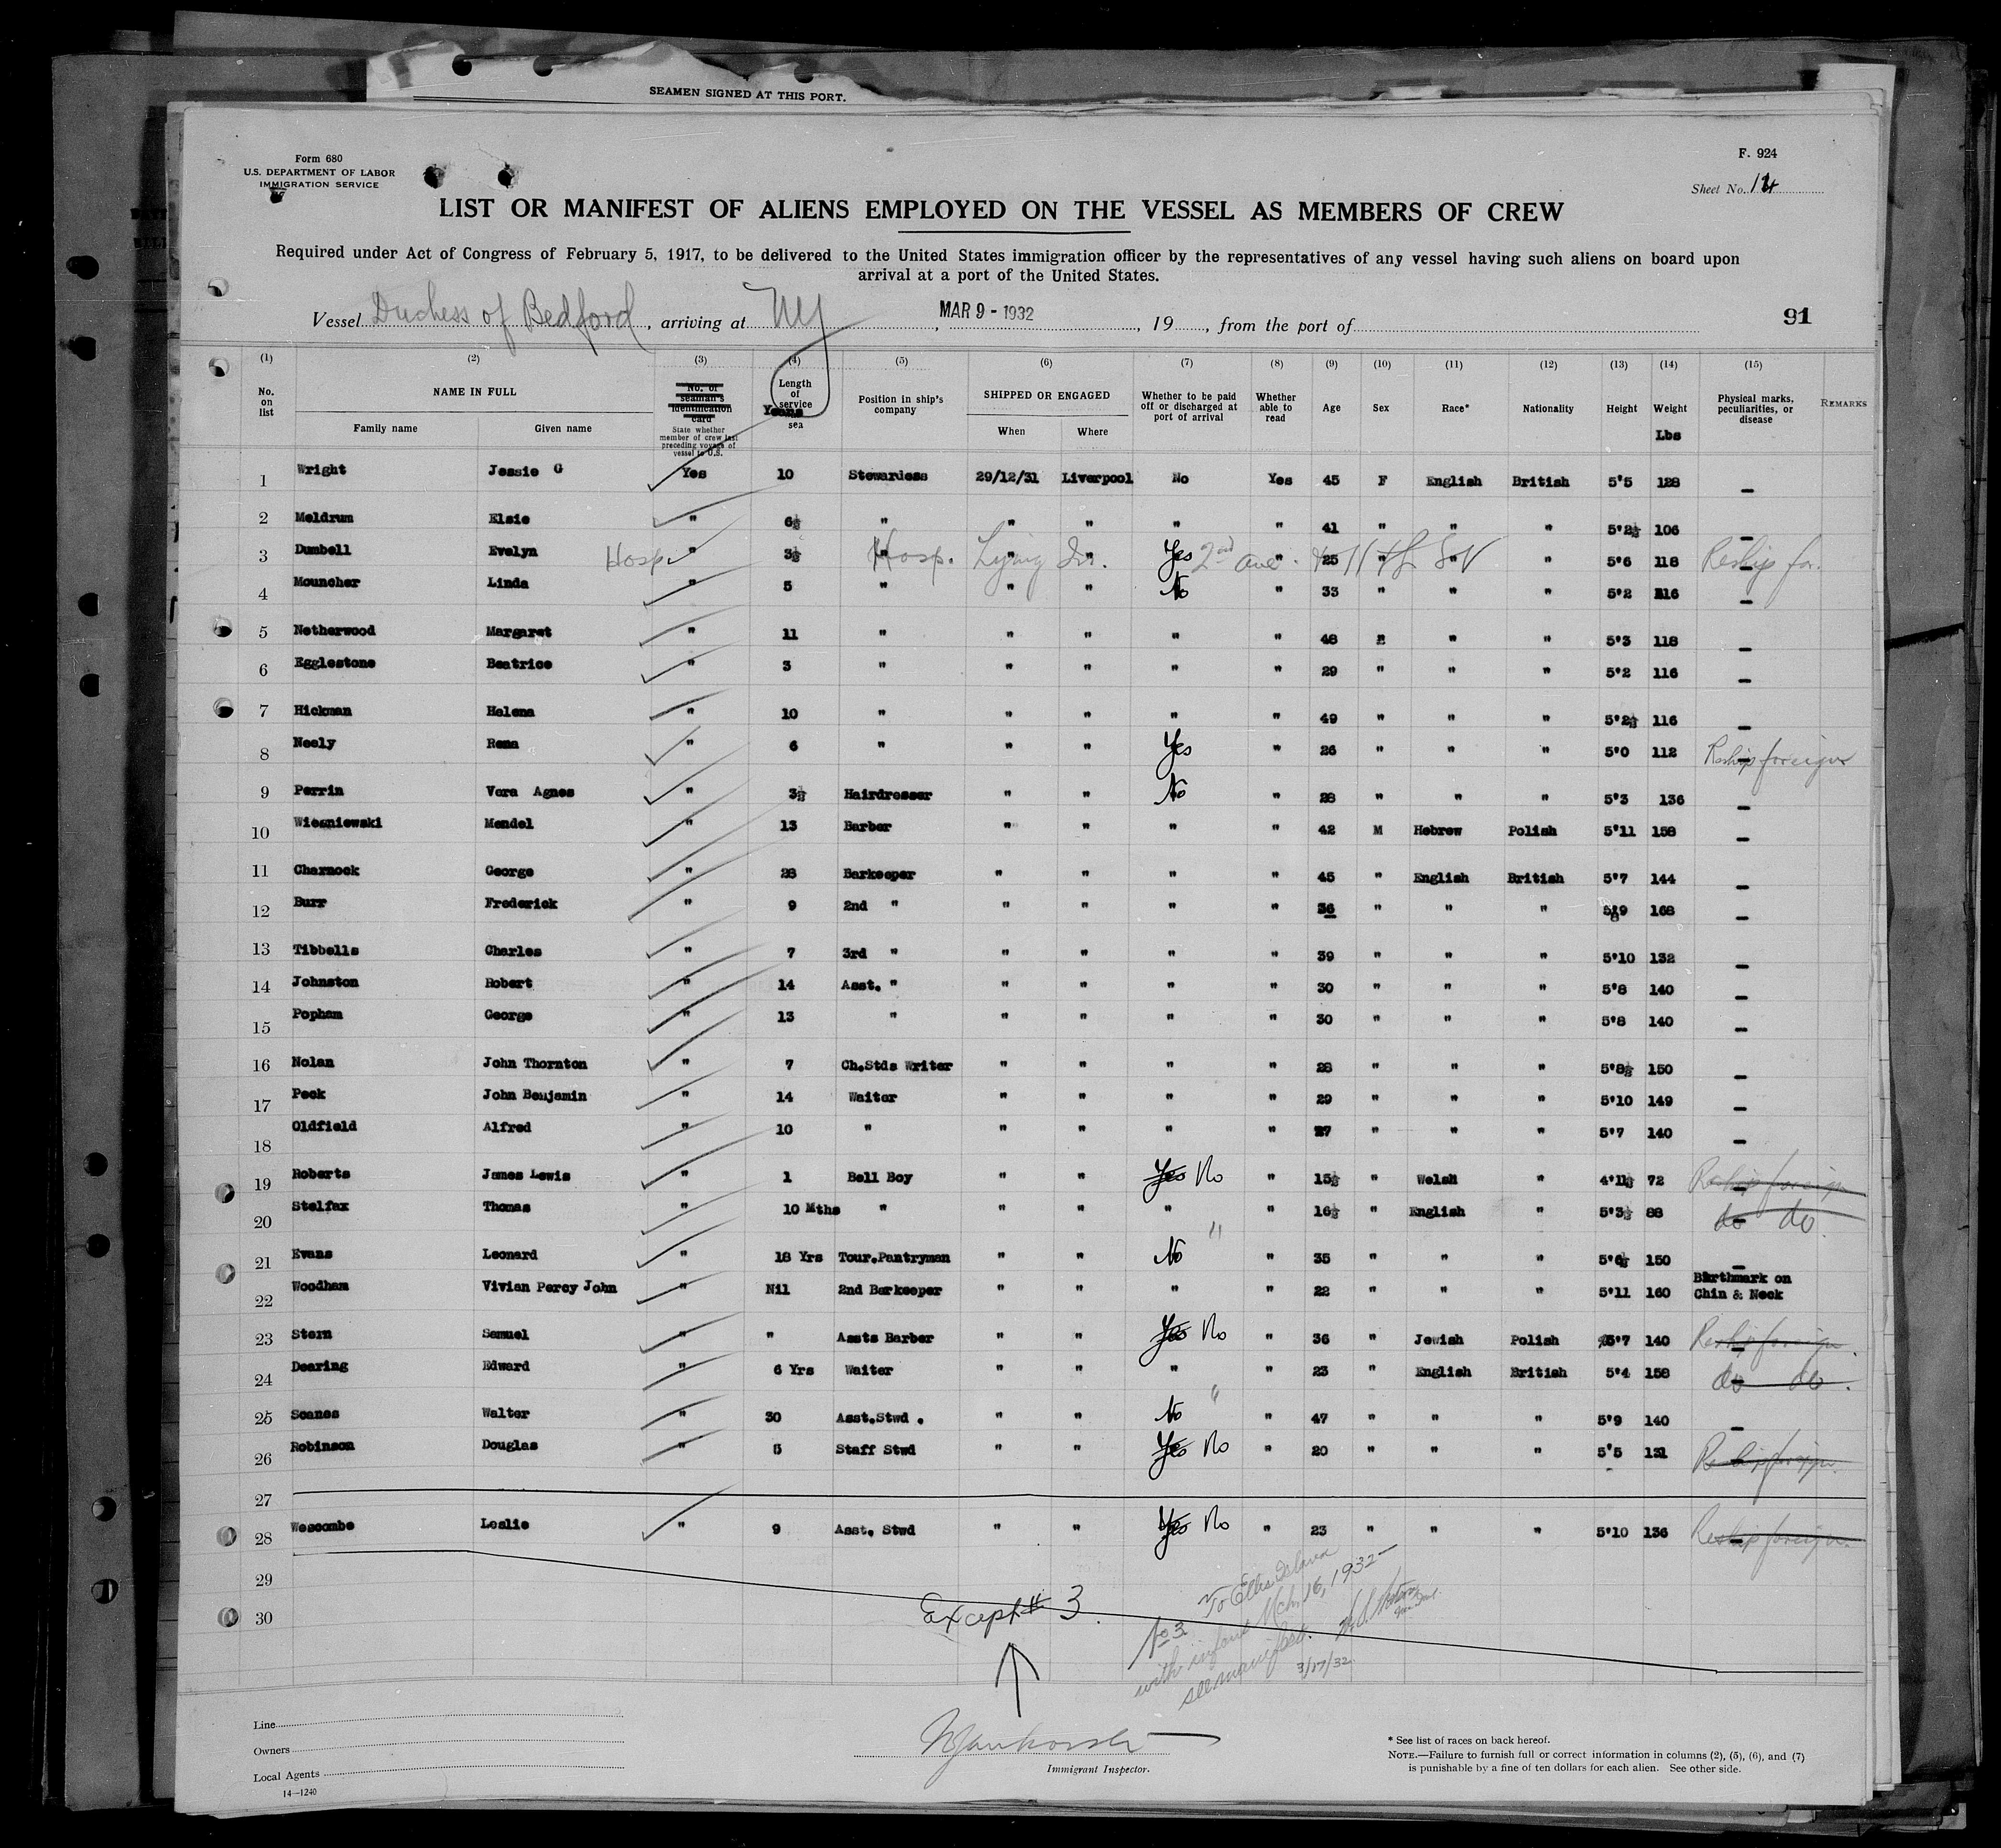 SEAMEN SIGNED AT THIS PORT.
Form 680
U.S. DEPARTMENT OF LABOR
IMMIGRATION SERVICE
F. 924
Sheet No. 14
LIST OR MANIFEST OF ALIENS EMPLOYED ON THE VESSEL AS MEMBERS OF CREW
Required under Act of Congress of February 5, 1917, to be delivered to the United States immigration officer by the representatives of any vessel having such aliens on board upon
arrival at a port of the United States.
Vessel Duchess of Bedford, arriving at NY, MAR 9 - 1932, 19, from the port of
91
(1) (2) (3) (4) (5) (6) (7) (8) (9) (10) (11) (12) (13) (14) (15)
No. on list NAME IN FULL Family name Given name No. of seaman's identification card State whether member of crew last preceding voyage of vessel to U.S. Length of service Years sea Position in ship's company SHIPPED OR ENGAGED When Where Whether to be paid off or discharged at port of arrival Whether able to read Age Sex Race* Nationality Height Weight Lbs Physical marks, peculiarities, or disease REMARKS
1 Wright Jessie G Yes 10 Stewardess 29/12/31 Liverpool No Yes 45 F English British 5'5 128 -
2 Meldrum Elsie " 6½ " " " " " 41 " " " 5'2½ 106 -
3 Dumbell Evelyn Hosp. " 3½ " Hosp. Lying In. " " Yes 2nd ave. " 25 " " " 5'6 118 - Reship for.
4 Mouncher Linda " 5 " " " No " 33 " " " 5'2 116 -
5 Netherwood Margaret " 11 " " " " " 48 " " " 5'3 118 -
6 Egglestone Beatrice " 3 " " " " " 29 " " " 5'2 116 -
7 Hickman Helena " 10 " " " " " 49 " " " 5'2½ 116 -
8 Neely Rena " 6 " " " Yes " 26 " " " 5'0 112 - Reship foreign
9 Perrin Vera Agnes " 3½ Hairdresser " " No " 28 " " " 5'3 136 -
10 Wiesniewski Mendel " 13 Barber " " " " 42 M Hebrew Polish 5'11 158 -
11 Charnock George " 28 Barkeeper " " " " 45 " English British 5'7 144 -
12 Burr Frederick " 9 2nd " " " " " 36 " " " 168 -
13 Tibbells Charles " 7 3rd " " " " " 39 " " " 5'10 132 -
14 Johnston Robert " 14 Asst. " " " " " 30 " " " 5'8 140 -
15 Popham George " 13 " " " " " 30 " " " 5'8 140 -
16 Nolan John Thornton " 7 Ch.Stds Writer " " " " 28 " " " 5'8½ 150 -
17 Peck John Benjamin " 14 Waiter " " " " 29 " " " 5'10 149 -
18 Oldfield Alfred " 10 " " " " " 27 " " " 5'7 140 -
19 Roberts James Lewis " 1 Bell Boy " " Yes No " 15½ " Welsh " 4'11½ 72 - Reship foreign
20 Stelfax Thomas " 10 Mths " " " " " " 16½ " English " 5'3½ 88 - do do
21 Evans Leonard " 18 Yrs Tour.Pantryman " " No " 35 " " " 5'6½ 150 -
22 Woodham Vivian Percy John " Nil 2nd Barkeeper " " " " 22 " " " 5'11 160 Birthmark on Chin & Neck
23 Stern Samuel " " Assts Barber " " Yes No " 36 " Jewish Polish 5'7 140 - Reship foreign
24 Dearing Edward " 6 Yrs Waiter " " " " " 23 " English British 5'4 158 - do do.
25 Scanes Walter " 30 Asst.Stwd . " " No " 47 " " " 5'9 140 -
26 Robinson Douglas " 5 Staff Stwd " " Yes No " 20 " " " 5'5 131 Reship foreign
27
28 Wescombe Leslie " 9 Asst. Stwd " " Yes No " 23 " " " 5'10 136 - Reship foreign
29
30
Except # 3.
No 3 To Ellis Island
with infant Mch. 16, 1932
see manifest.
3/17/32
Line
Owners
Local Agents
14-1240
Immigrant Inspector.
* See list of races on back hereof.
NOTE.—Failure to furnish full or correct information in columns (2), (5), (6), and (7)
is punishable by a fine of ten dollars for each alien. See other side.